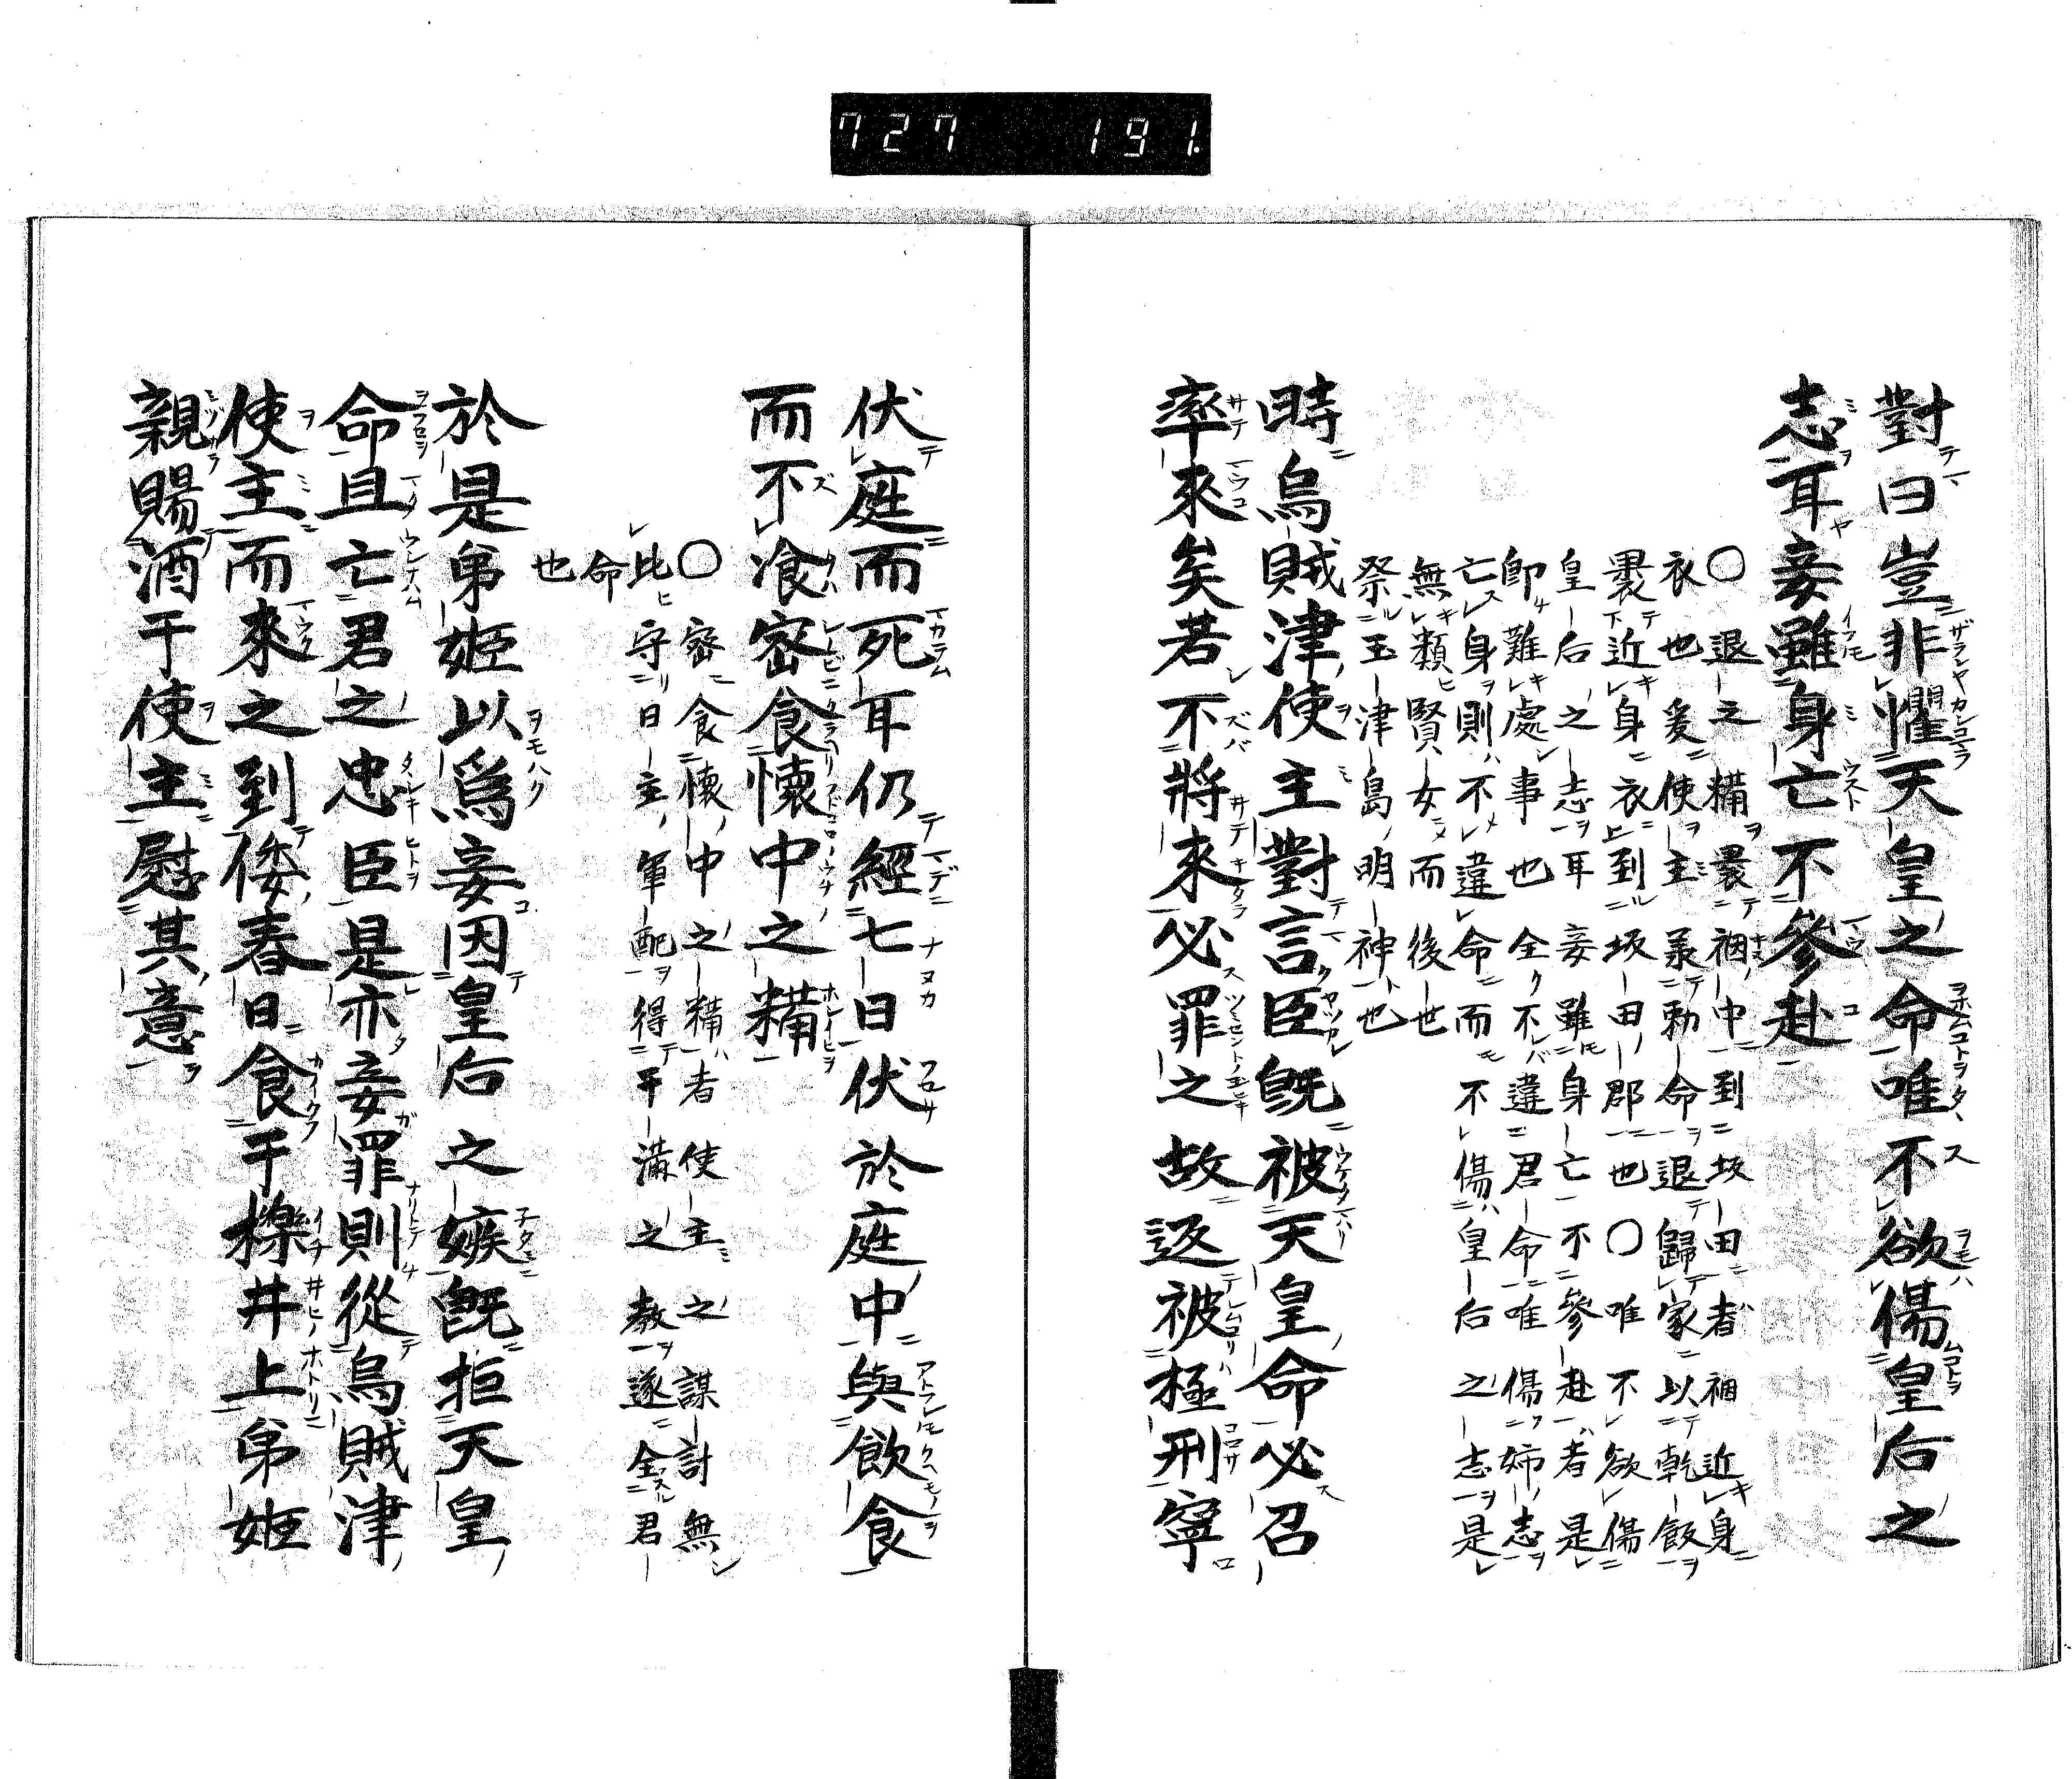 727 191.
對曰豈非懼天皇之命唯不欲傷皇后之
志耳妾雖身亡不參赴
〇退之糒裹裀中到坂田者裀近身
衣也爰使主羕勅命退歸家以乾飯
裹近身衣到坂田郡也〇唯不欲傷
皇后之志耳妾雖身亡不參赴者是
卽難處事也全不違君命唯傷姉志
亡身則不違命而不傷皇后之志是
無類賢女而後世
祭玉津島明神也
時烏賊津使主對言臣旣被天皇命必召
率來矣若不將來必罪之故返被極刑寧
伏庭而死耳仍經七日伏於庭中與飲食
而不飡密食懷中之糒
〇密食懷中之糒者使主之謀計無
比守日主軍配得干滿之教遂全君
命
也
於是弟姬以爲妾因皇后之嫉旣拒天皇
命且亡君之忠臣是亦妾罪則從烏賊津
使主而來之到倭春日食于櫟井上弟姬
親賜酒于使主慰其意